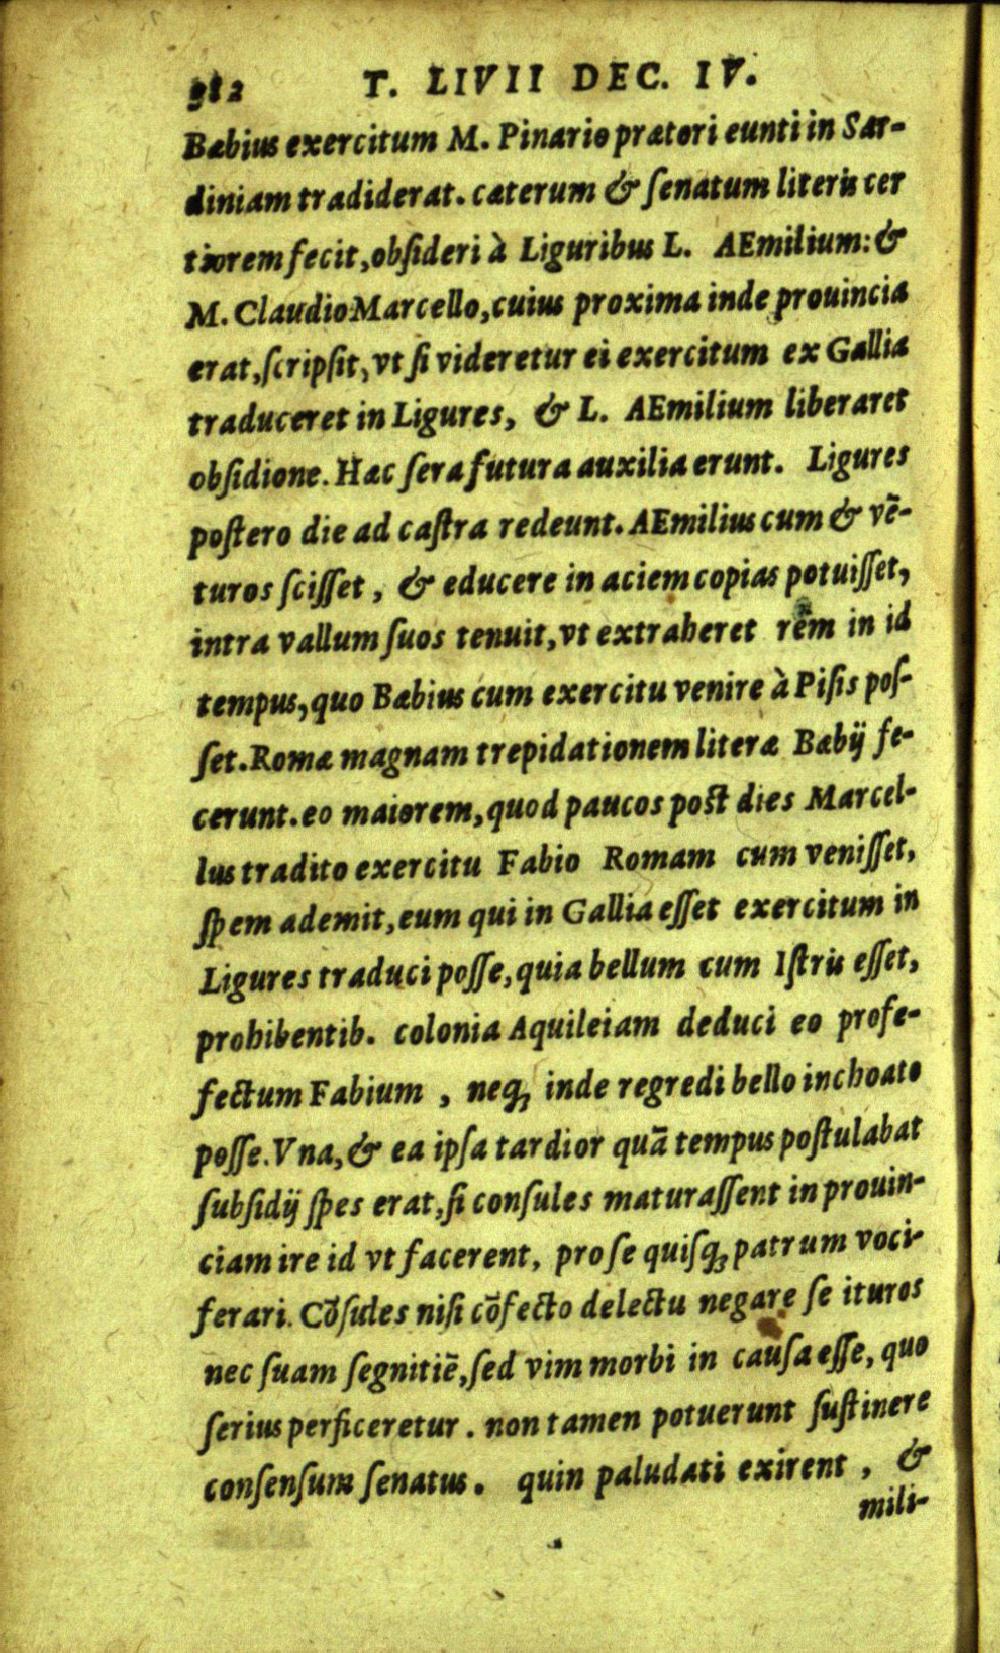 982 T. LIVII DEC. IV.
Bæbius exercitum M. Pinario prætori eunti in Sar-
diniam tradiderat. cæterum & ſenatum literis cer
tiorem fecit, obſideri à Liguribus L. AEmilium: &
M. Claudio Marcello, cuius proxima inde prouincia
erat, ſcripſit, vt ſi videretur ei exercitum ex Gallia
traduceret in Ligures, & L. AEmilium liberaret
obſidione. Hæc ſera futura auxilia erunt. Ligures
poſtero die ad caſtra redeunt. AEmilius cum & vē-
turos ſciſſet, & educere in aciem copias potuiſſet,
intra vallum ſuos tenuit, vt extraheret rēm in id
tempus, quo Bæbius cum exercitu venire à Piſis poſ-
ſet. Romæ magnam trepidationem literæ Bæbij fe-
cerunt. eo maiorem, quod paucos poſt dies Marcel-
lus tradito exercitu Fabio Romam cum veniſſet,
ſpem ademit, eum qui in Gallia eſſet exercitum in
Ligures traduci poſſe, quia bellum cum Iſtris eſſet,
prohibentib. colonia Aquileiam deduci eo profe-
fectum Fabium, neq; inde regredi bello inchoato
poſſe. Vna, & ea ipſa tardior quā tempus poſtulabat
ſubſidij ſpes erat, ſi conſules maturaſſent in prouin-
ciam ire id vt facerent, pro ſe quiſq; patrum voci-
ferari. Cōſules niſi cōfecto delectu negare ſe ituros
nec ſuam ſegnitiē, ſed vim morbi in cauſa eſſe, quo
ſerius perficeretur. non tamen potuerunt ſuſtinere
conſenſum ſenatus. quin paludati exirent, &
mili-